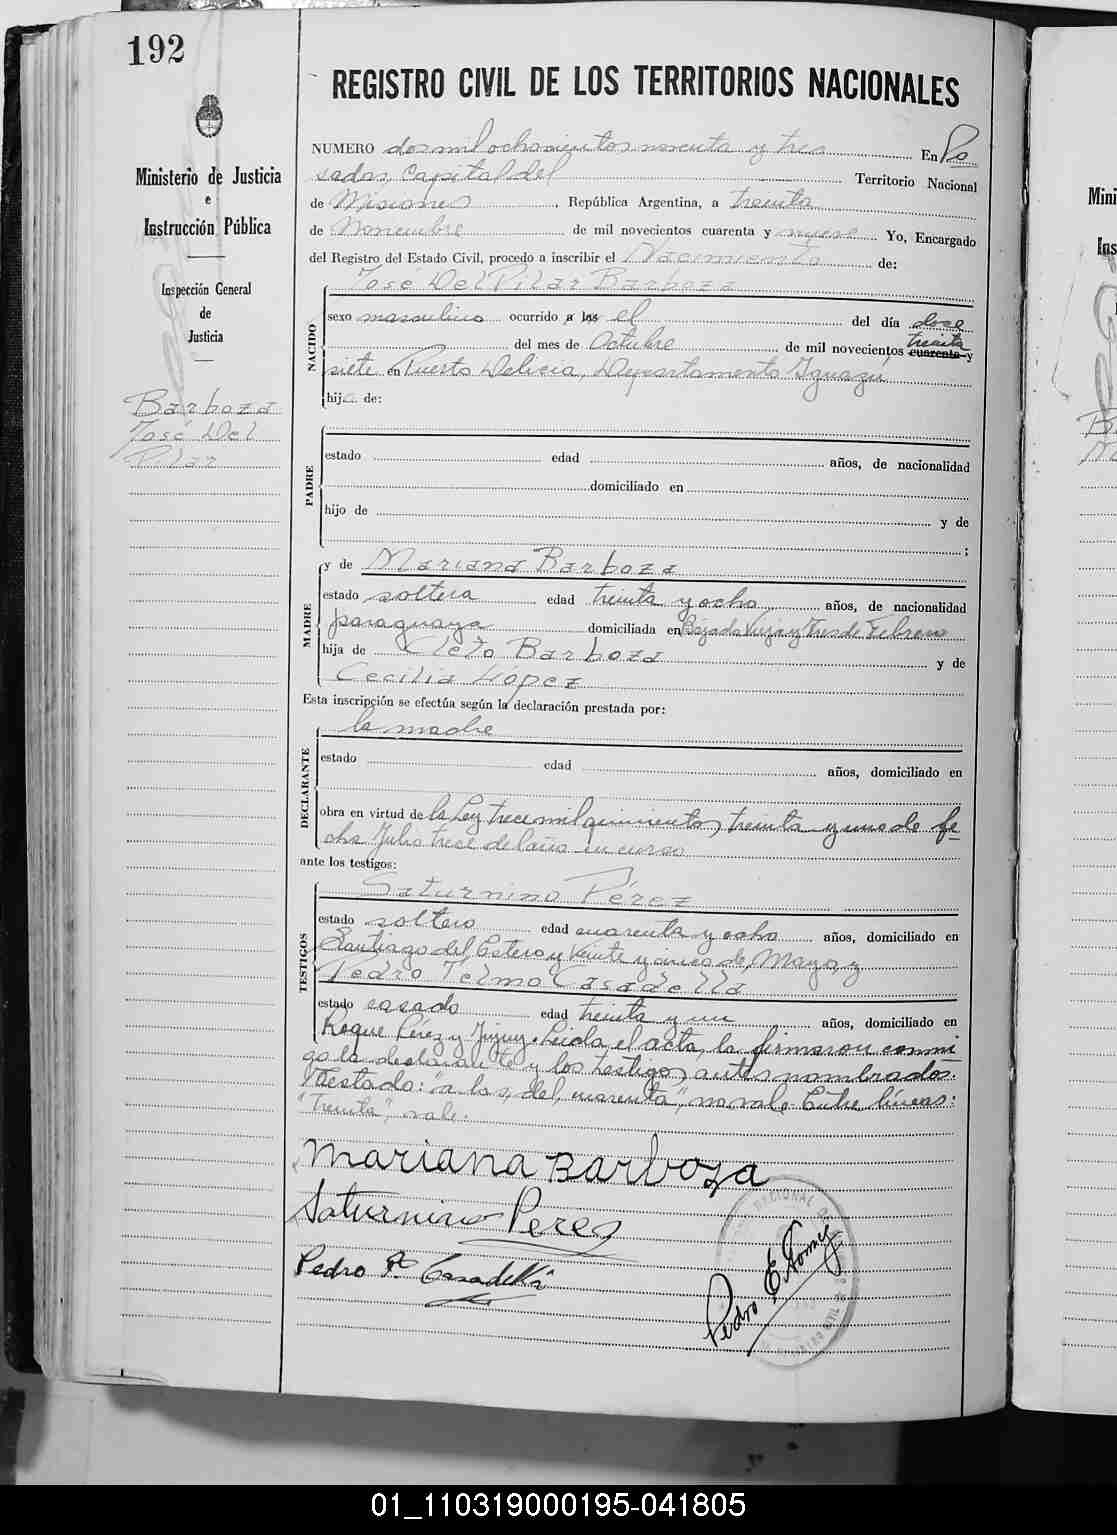 192
REGISTRO CIVIL DE LOS TERRITORIOS NACIONALES
Ministerio de Justicia
e
Instrucción Pública
Inspección General
de
Justicia
Barboza
José Del
Pilar
NUMERO dos mil ochocientos noventa y tres En Po
sadas, Capital del Territorio Nacional
de Misiones, República Argentina, a treinta
de Noviembre de mil novecientos cuarenta y nueve Yo, Encargado
del Registro del Estado Civil, procedo a inscribir el Nacimiento de:
José Del Pilar Barboza
NACIDO
sexo masculino ocurrido a las el del día doce
del mes de Octubre de mil novecientos cuarenta y treinta
siete en Puerto Delicia, Departamento Iguazú
hijo de:
PADRE
estado edad años, de nacionalidad
domiciliado en
hijo de y de
;
MADRE
y de Mariana Barboza
estado soltera edad treinta y ocho años, de nacionalidad
paraguaya domiciliada en Bajada Vieja y Tres de Febrero
hija de Cleto Barboza y de
Cecilia López
Esta inscripción se efectúa según la declaración prestada por:
la madre
DECLARANTE
estado edad años, domiciliado en
obra en virtud de la Ley trece mil quinientos treinta y uno de fe-
cha Julio trece del año en curso
ante los testigos:
TESTIGOS
Saturnino Pérez
estado soltero edad cuarenta y ocho años, domiciliado en
Santiago del Estero y Veinte y cinco de Mayo y
Pedro Telmo Casadella
estado casado edad treinta y un años, domiciliado en
Roque Pérez y Jujuy. Leída el acta, la firmaron conmi
go la declarante y los testigos antes nombrados.
Testado: "a las, del, cuarenta", no vale. Entre líneas:
"Treinta", vale.
Mariana Barboza
Saturnino Perez
Pedro T. Casadella
Pedro E.
01_110319000195-041805